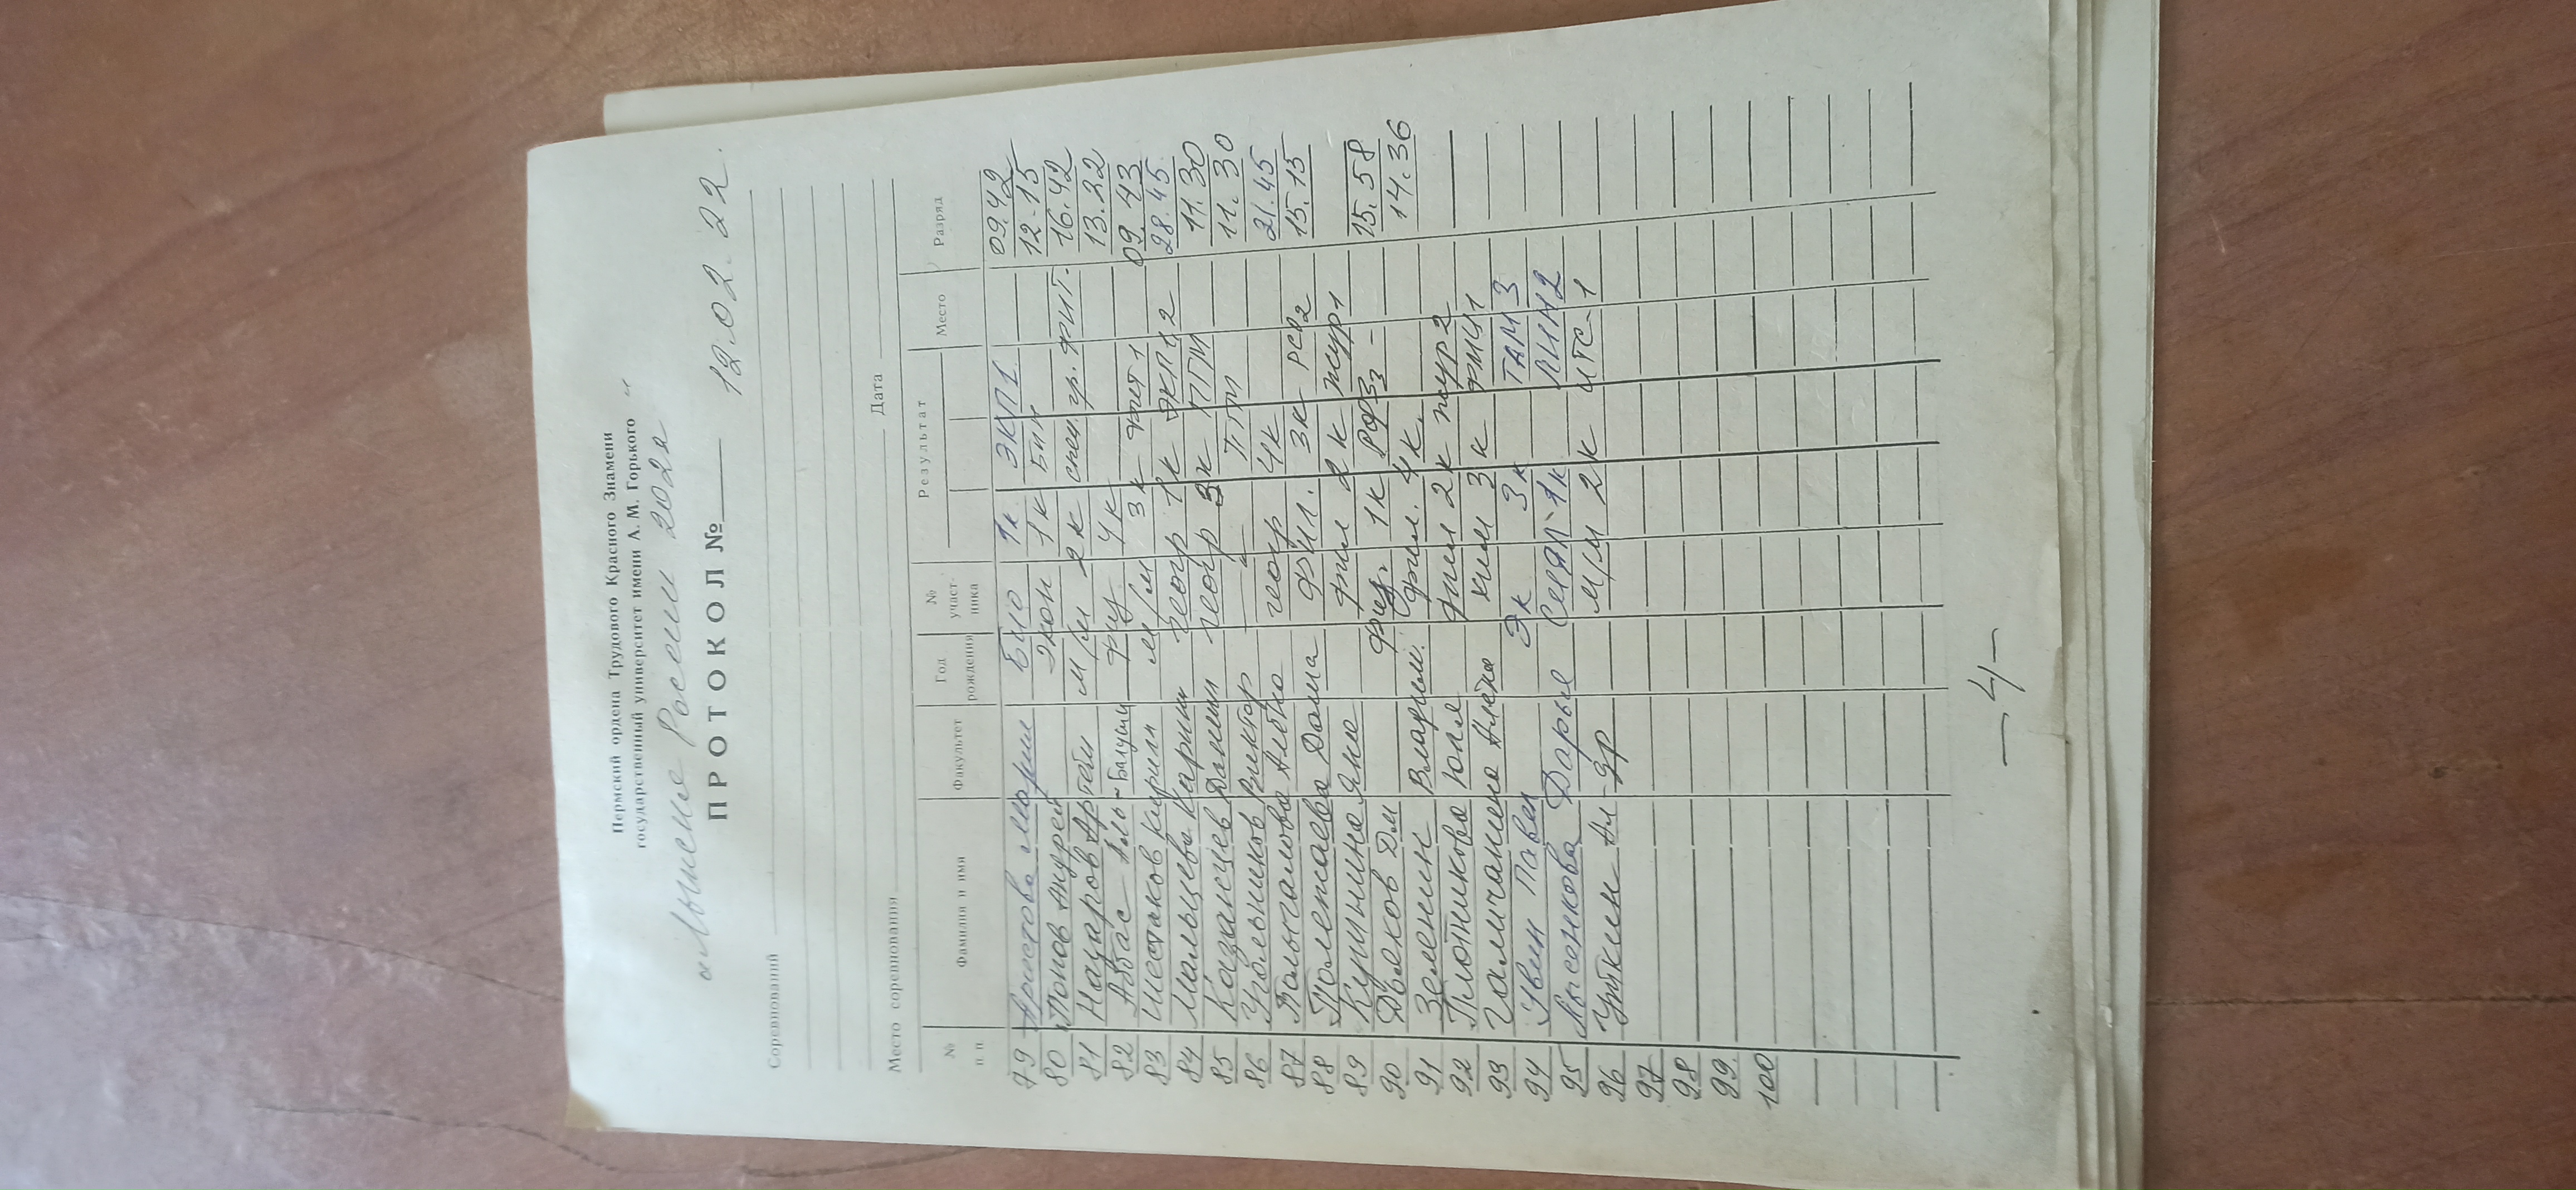 Пермский ордена Трудового Красного Знамени
государственный университет имени А. М. Горького
„Лыжня России 2022"
ПРОТОКОЛ № 12.02.22.
Соревнований
Место соревнования Дата
№ п п Фамилия и имя Факультет Год рождения № участ- ника Результат Место Разряд
79 Аристова Мария Био 1к ЭКП1 09.42
80 Попов Андрей Экон 1к БИ 12.15
81 Назаров Артём м/м 2к спец гр. ФИТ. 16.42
82 Аббас Аль- физ 4к 13.22
83 Шестаков Кирилл м/м 3к 09.43
84 Мальцева Карина геогр 1к ЭКП 2 28.45
85 Казанцев Данил геогр 3к ПГИ 11.30
86 Угольников Виктор " 11.30
87 Полычалова геогр 4к 21.45
88 Полежаева Дома ФИЛ. 3к РСО2 15.15
89 Купинина Яна фил 2к жур1
90 Дьяков Дм физ. 1к РФЗ3 - 15.58
91 Зеленин Владим. фил. 4к. 14.36
92 Плотникова Юлия фил 2к жур2
93 Галичанина Алёна хим 3к ФМЦ1
94 Увин Павел Эк 3к ТАМ 3
95 Лысенкова Дарья СИЯЛ 1к ЛИН2
96 Уткин Ал-др м/м 2к ИТС-1
97
98
99.
100
-4-